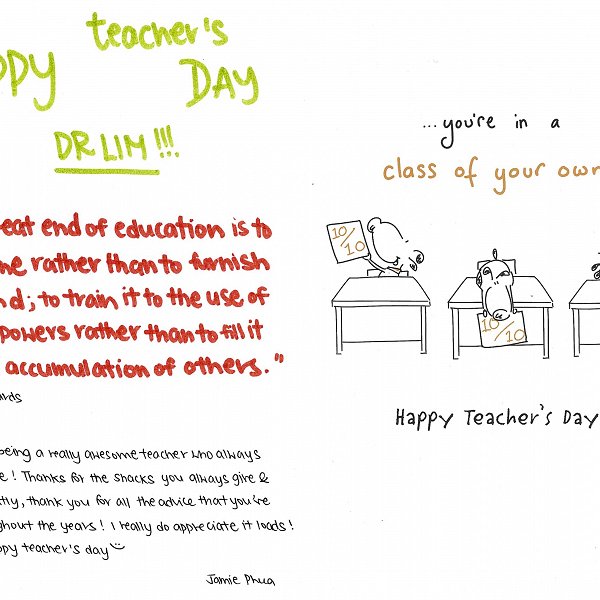 teacher's
PPY DAY
DR LIM!!!
eat end of education is to
ne rather than to furnish
nd; to train it to the use of
powers rather than to fill it
accumulation of others."
ards
being a really awesome teacher who always
e! Thanks for the snacks you always give &
tly, thank you for all the advice that you're
ghout the years! I really do appreciate it loads!
ppy teacher's day
Jamie Phua
...you're in a
class of your own
10/10
10/10
Happy Teacher's Day